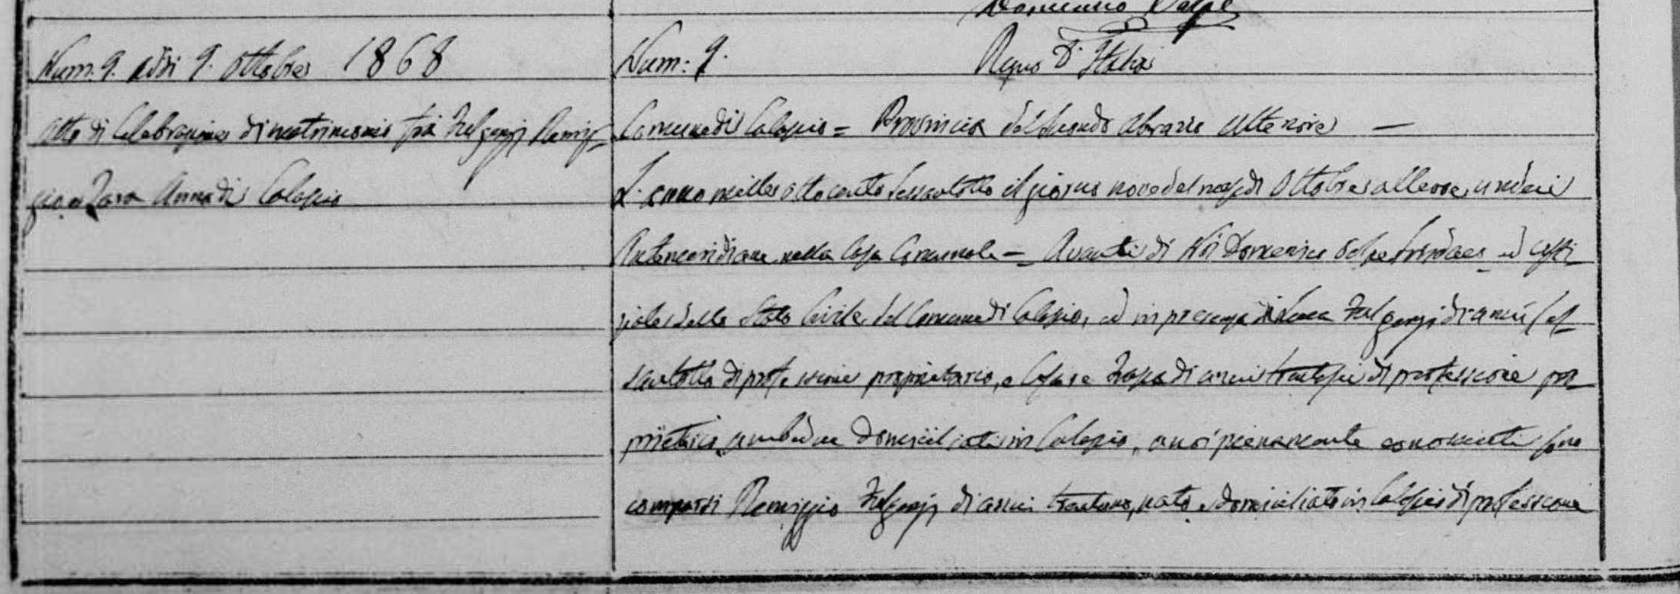 Domenico Volpe
Num. 9. Addì 9. Ottobre 1868
Atto di Celebrazione di matrimonio trà Fulgenzj Remig=
gio e Zara Anna di Calascio
Num: 9. Regno d'Italia
Comune di Calascio = Provincia del Secondo Abruzzo Ulteriore —
L'anno mille ottocento sessantotto il giorno nove del mese di Ottobre alle ore undeci
Antemeridiane nella Casa Comunale = Avanti di Noi Domenico Volpe Sindaco ed Uffi=
ziale dello Stato Civile del Comune di Calascio, ed in presenza di Fulgenzj di anni ses=
santotto di professione proprietario, e di anni trentasei di professione pro=
prietario, ambedue domiciliati in Calascio, a noi pienamente conosciuti sono
comparsi Remiggio Fulgenzj di anni trentuno, nato e domiciliato in Calascio di professione